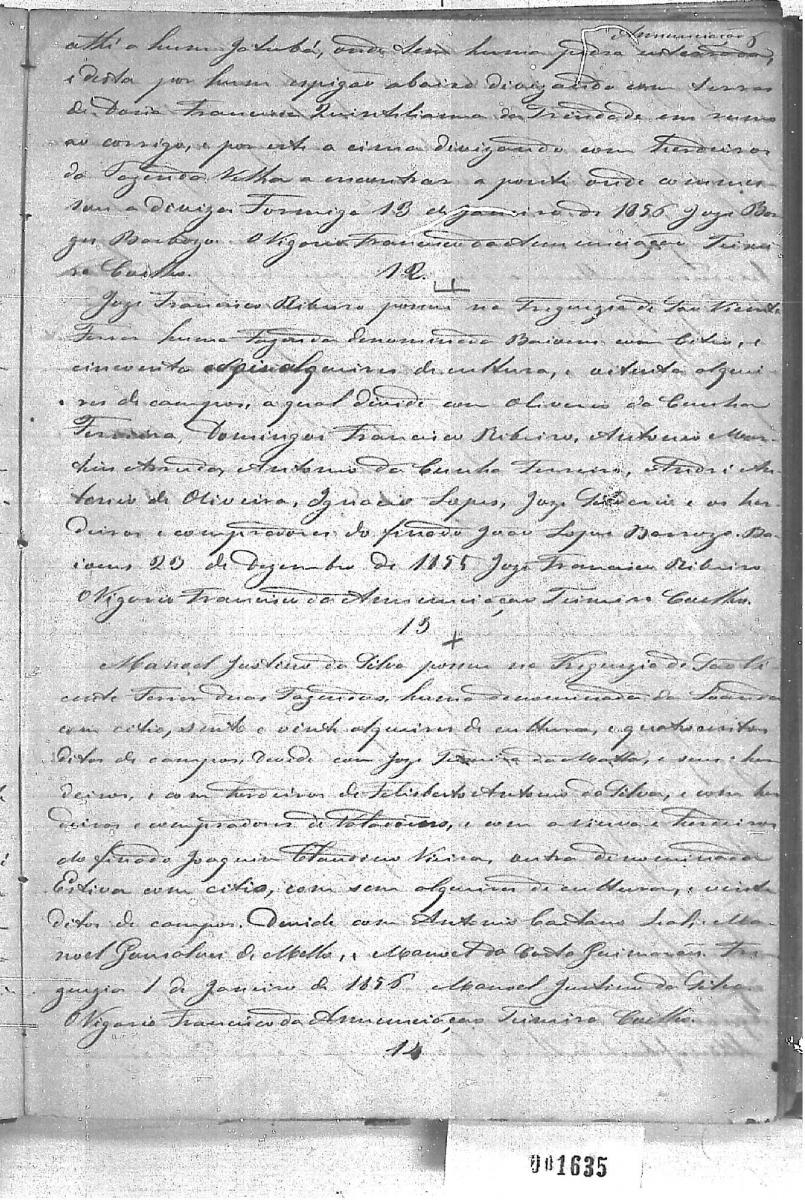 Annunciação 6
athé a hum Jatubá, onde tem huma pedra enterrada,
e desta por hum espigão abaixo divizando com terras
de Dona Francisca Quintilianna da Trindade em rumo
ao corrigo, e por este a cima divizando com herdeiros
da Fazenda Velha a encontrar a ponte onde commes-
sou a diviza. Formiga 13 de Janeiro de 1856 Joze Bor-
ges Barboza. O Vigario Francisco da Annunciação Teixei-
ra Coelho.
12.
Joze Francisco Ribeiro possue na Freguezia de Sao Vicente
Ferrer huma Fazenda denominada Baioens com Citio, e
cincoenta alqueires de cultura, e oitenta alquei-
res de campos, a qual devide com Oliverio da Cunha
Ferreira, Domingos Francisco Ribeiro, Antonio Mar-
tins Arruda, Antonio da Cunha Ferreira, André An-
tonio de Oliveira, Ignacio Lopes, Joze e os her-
deiros e compradores do finado João Lopes Barrozo. Ba-
ioens 23 de Dezembro de 1855 Joze Francisco Ribeiro
O Vigario Francisco da Annunciação Teixeira Coelho.
13
Manoel Justino da Silva possue na Freguezia de Sao Vi-
cente Ferrer duas Fazendas, huma denominada da
com citio, sento e vinte alqueires de cultura, e quatrocentos
ditos de campos. Devide com Joze da Motta, e seus her-
deiros, e com herdeiros de Felisberto Antonio da Silva, e com her-
deiros e compradores de, e com a viuva e herdeiros
do finado Joaquim Claudino Vieira, outra denominada
Estiva com citio, com sem alqueires de cultura, e vinte
ditos de campos. Devide com Antonio Caetano Leal, Ma-
noel Gonsalves de Mello, e Manoel da Costa Guimarães. Fre-
guezia 1 de Janeiro de 1856 Manoel Justino da Silva
O Vigario Francisco da Annunciação Teixeira Coelho.
14
001635